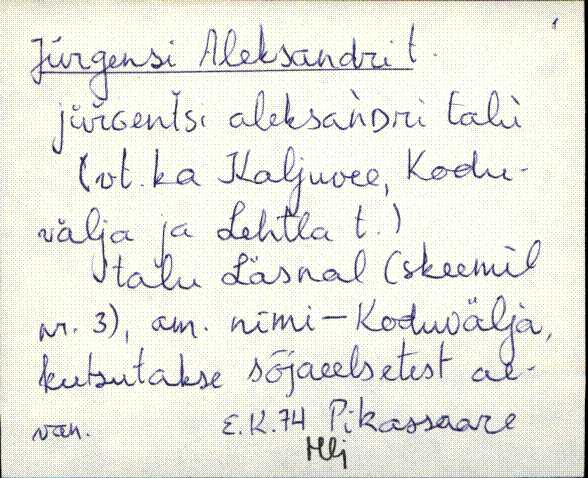 Jürgensi Aleksandri t.
jürGenᴵsi aleksàńDri talù
(vt. ka Kaljuvee, Kodu-
välja ja Lehtla t.)
talu Läsnal (skeemil
nr. 3), am. nimi – Koduvälja,
kutsutakse sõjaeelsetest ae-
van.
E.K. 74 Pikassaare
Hlj